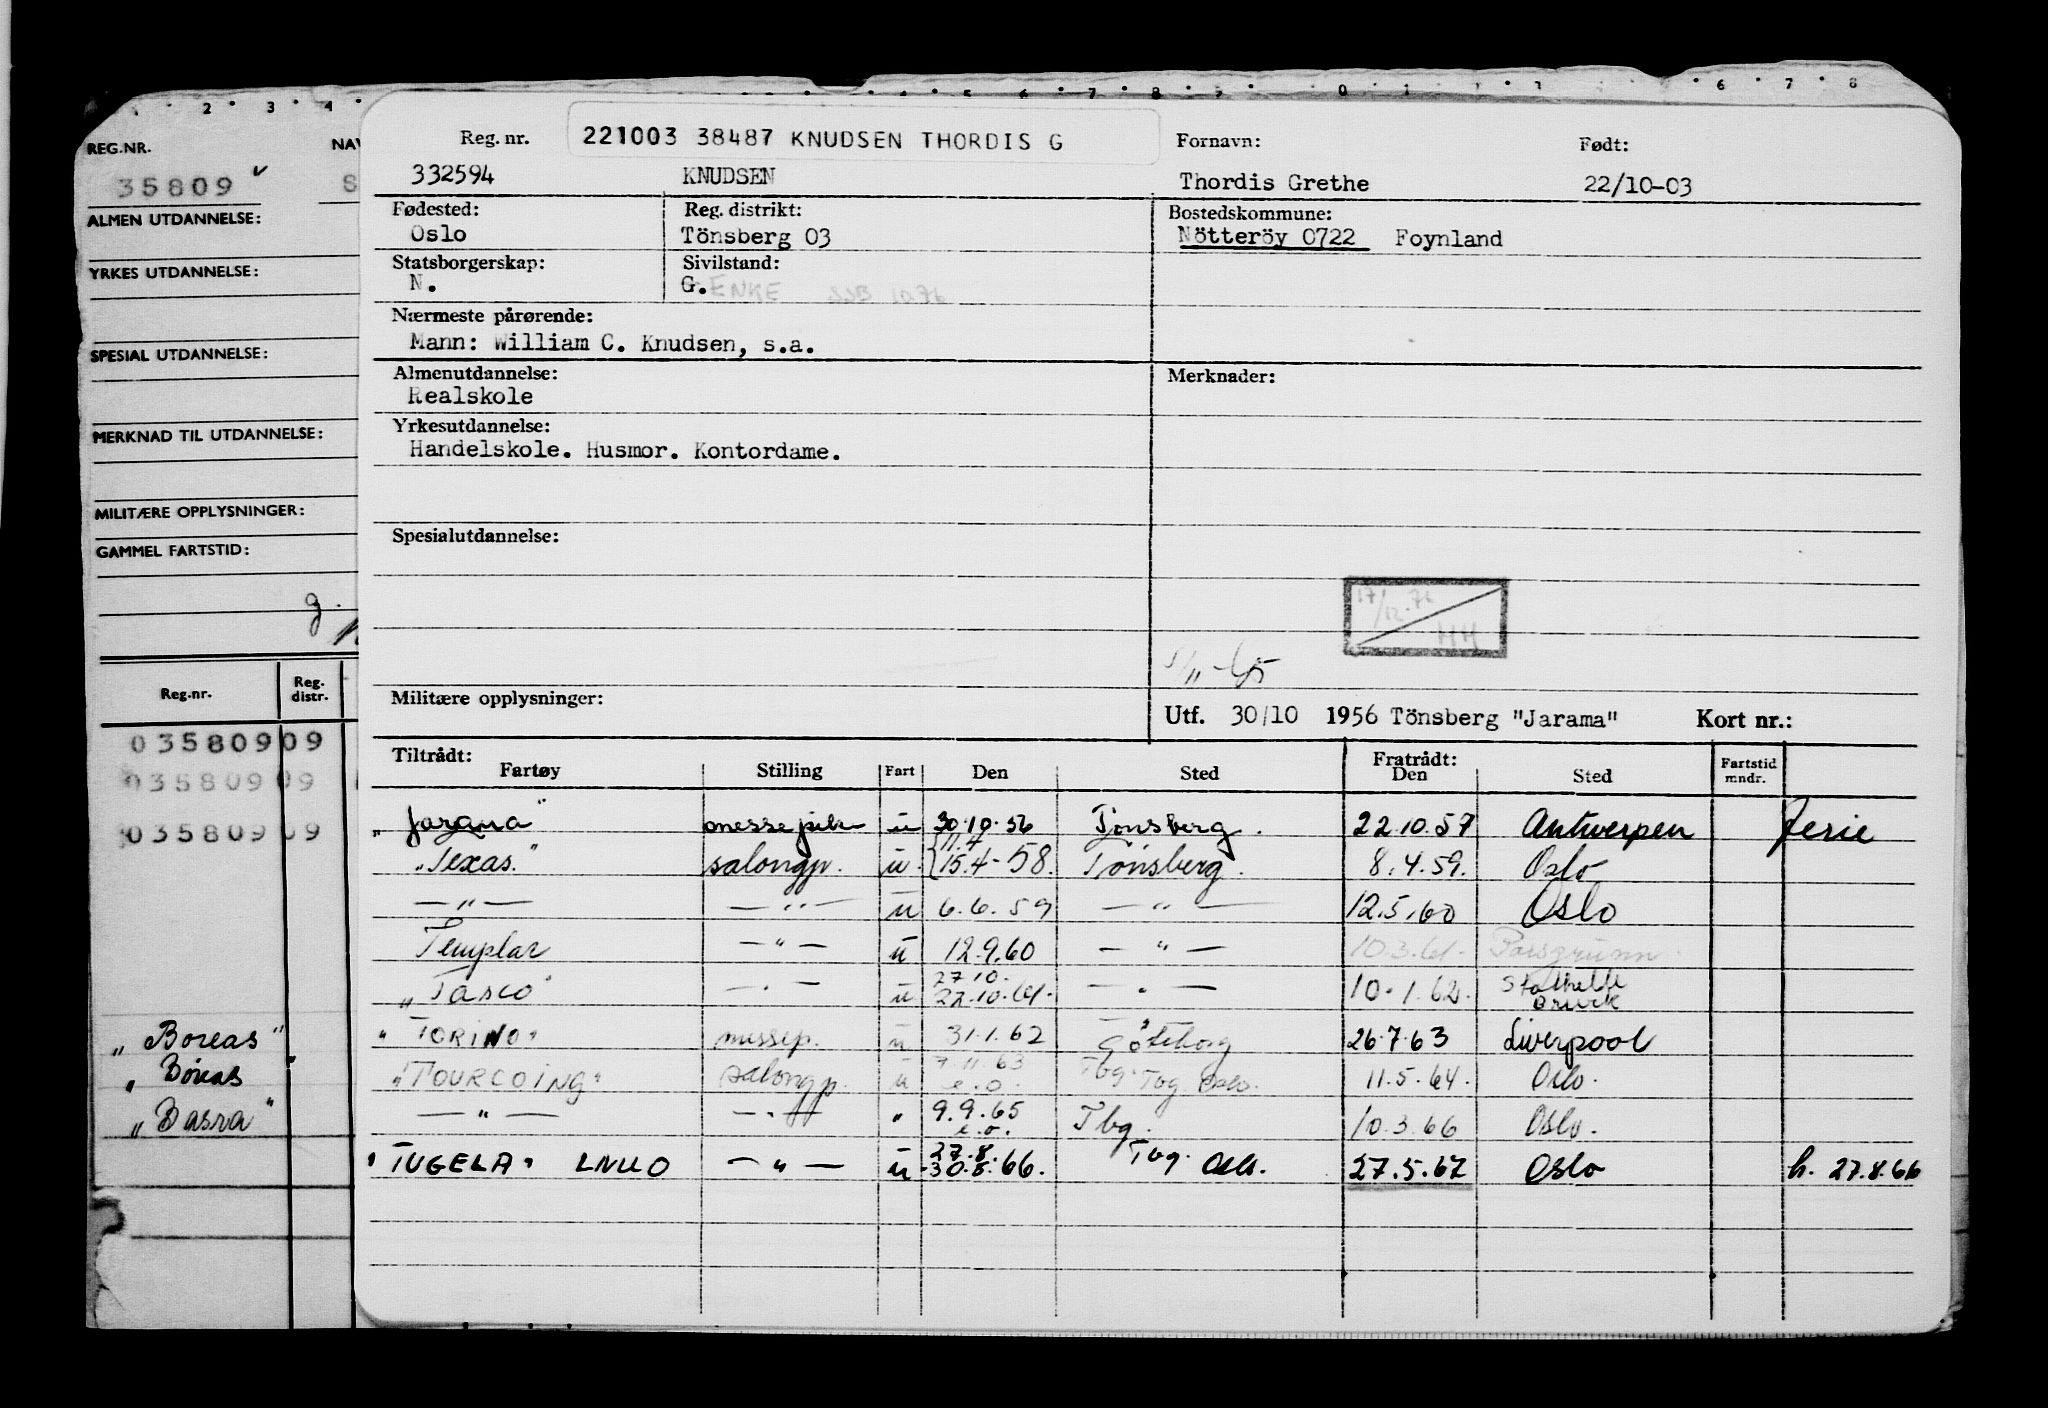 2 · 3 · 4 ·
REG.NR. NAV
35809 S
ALMEN UTDANNELSE:
YRKES UTDANNELSE:
SPESIAL UTDANNELSE:
MERKNAD TIL UTDANNELSE:
MILITÆRE OPPLYSNINGER:
GAMMEL FARTSTID:
g.
Reg.nr. Reg. distr.
03580909
03580909
03580909
„Boreas"
„Boreas"
„Basra"
Reg. nr. 221003 38487 KNUDSEN THORDIS G Fornavn: Født:
332594 KNUDSEN Thordis Grethe 22/10-03
Fødested: Reg. distrikt: Bostedskommune:
Oslo Tönsberg 03 Nötteröy 0722 Foynland
Statsborgerskap: Sivilstand:
N. G. ENKE SSB 10.76
Nærmeste pårørende:
Mann: William C. Knudsen, s.a.
Almenutdannelse: Merknader:
Realskole
Yrkesutdannelse:
Handelskole. Husmor. Kontordame.
Spesialutdannelse:
17/12.76 HH
Militære opplysninger:
Utf. 30/10 1956 Tönsberg "Jarama" Kort nr.:
Tiltrådt: Fratrådt:
Fartøy Stilling Fart Den Sted Den Sted Fartstid mndr.
„Jarama" messepike u 30.10.56 Tønsberg. 22.10.57 Antwerpen ferie
„Texas." salongp. u. {11.4 15.4-58. Tønsberg. 8.4.59. Oslo
— " — — " — u 6.6.59 — " — 12.5.60 Oslo
Templar — " — u 12.9.60 — " — 10.3.61. Porsgrunn
„Tasco" — " — u 27.10. 22.10.61. — " — 10.1.62. Stathelle Bruck
"TORINO" messep. u 31.1.62 Göteborg 26.7.63 Liverpool
"TOURCOING" salongp. u 7.11.63 e.o. Tbg. Tbg Oslo. 11.5.64. Oslo.
— " — — " — " 9.9.65 e.o. Tbg. 10.3.66 Oslo.
"TUGELA" LNUO — " — u 27.8. 30.8.66. Tbg. Oslo. 27.5.67 Oslo h. 27.8.66